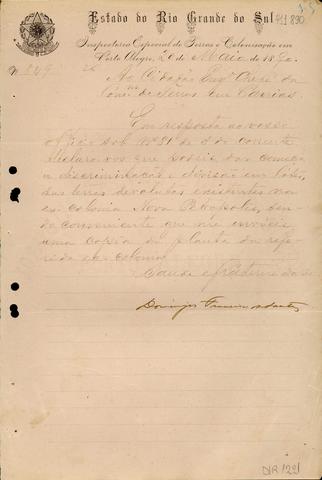 Estado do Rio Grande do Sul
Inspectoria Especial de Terras e Colonisação em
Porto Alegre, 20 de Maio de 1890.
Nº 849
Ao Cidadão Engº Chefe da
Comm. de Terras em Caxias.
Em resposta ao vosso
officio sob Nº 51 de 3 do corrente
declaro-vos que podeis dar começo
a discriminação e divisão em lotes,
das terras devolutas existentes na
ex-colonia Nova Petropolis, sendo
conveniente que me envieis
uma copia da planta da referida
ex-colonia.
Saude e fraternidade
Domingos
DIR 1221